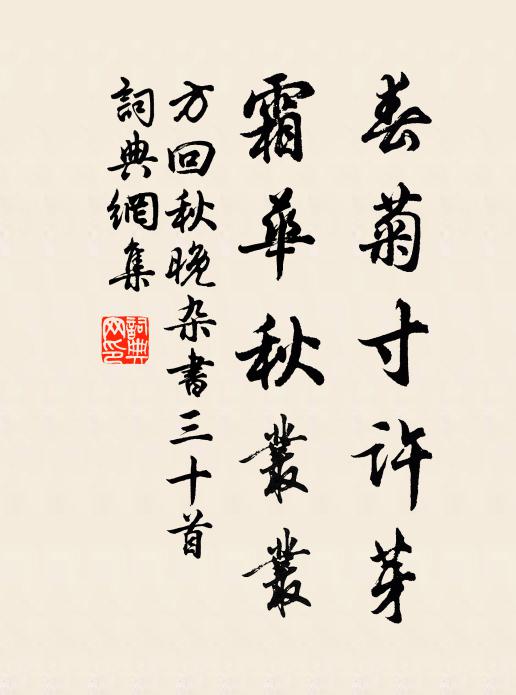 春菊寸許芽
霜華秋叢叢
方回秋晚杂書三十首
詞典網集
詞典网印